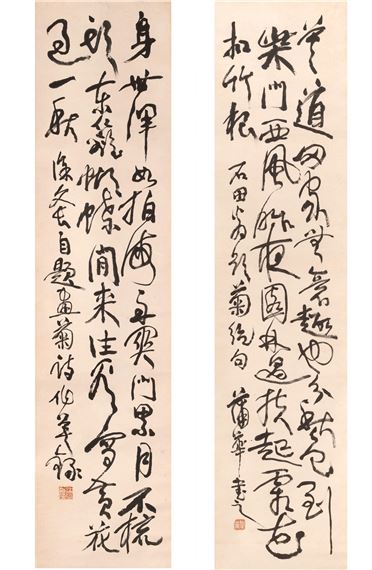 莫道家無意趣也分秋色到
柴門西風昨夜園林過扶起霜花
扣竹根 石田翁題菊絕句 蒲華書之
身世渾如拍海舟關門累月不梳
頭東籬蝴蝶閒來往看寫黃花
過一秋 徐文長自題畫菊詩 作英錄